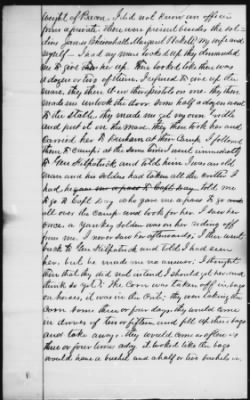 weight of Bacon. I did not know an officer
from a private. there were present besides the sol-
diers James Chisenhall Margaret my wife and
myself. I had my mare locked up they demanded
me to give her up. there looked like there was
a dozen or two of them. I refused to give up the
mare, they then drew their pistols on me. they then
made me unlock the door some half a dozen went
to the stable, they made me get my own Bridle
and put it on his mare. they then took her and
carried her to Durham at their Camp. I followed
them to camp at the same time I went immediately
to Gen Kilpatrick and told him I was an old
man and his soldiers had taken all the critters I
had. he told me
to go to Capt Day who gave me a pass to go
all over the camp and look for her. I saw her
once. a yankey soldier was on her riding off
from me. I never saw her afterwards, I then went
back to Gen Kilpatrick and told I had seen
her, but he made me no answer; I thought
then that they did not intend I should get her and
think so yet. The corn was taken off in bags
on horses, it was in the Crib; they were taking the
corn some three or four days, they would come
in droves of ten or fifteen and fill up their bags
and take away. they would come as often as
three or four times a day. it looked like the bags
would have a bushel and a half or two bushels in